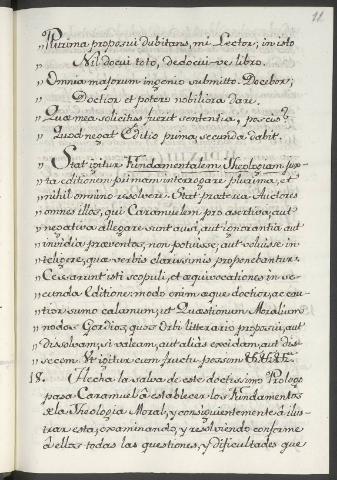 11
„ Plurima proposui dubitans, mi Lector; in isto
„ Nil docui toto, dedocui-ve libro.
„ Omnia maiorum ingenio submitto. Docebor;
„ Doctior et potero nobiliora dare.
„ Quæ mea solicitus fuerit sententia, poscis?
„ Quod negat Editio prima, secunda dabit.
„ Stat igitur Fundamentalem Theologiam jux-
„ ta editionem primam interrogare plurima, et
„ nihil omnino resolvere. Stat præterea Auctores
„ omnes illos, qui Caramuelem pro asertiva, aut
„ negativa allegare sunt ausi, aut ignorantia aut
„ invidia præventos, non potuisse, aut voluisse in-
„ teligere, quæ verbis clarissimis proponebantur.
„ Cessarunt isti scopuli, et æquivocationes in se-
„ cunda Editione: modo enim æque doctior, ac cau-
„ tior sumo calamum; ut Quæstionum Moralium
„ nodos Gordios, quos Orbi litterario proposui, aut
„ dissolvam, si valeam, aut aliàs excidam, aut dis-
„ secem. Ut igitur cum fructu possim
18. Hecha la salva de este doctissimo Prologo
pasa Caramuel à establecer los Fundamentos
de la Theologia Moral, y consiguientemente à ilus-
trar esta, examinando, y resolviendo conforme
à ellos todas las questiones, y dificultades que